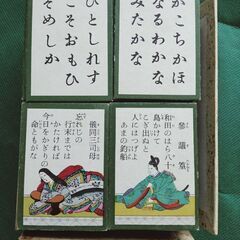 かこちかほ
なるわかな
みたかな
ひとしれす
こそおもひ
そめしか
參議篁
和田のはら八十
島かけて
こぎ出ぬと
人にはつげよ
あまの釣船
儀同三司母
忘れじの
行末までは
かたければ
今日をかぎりの
命ともがな